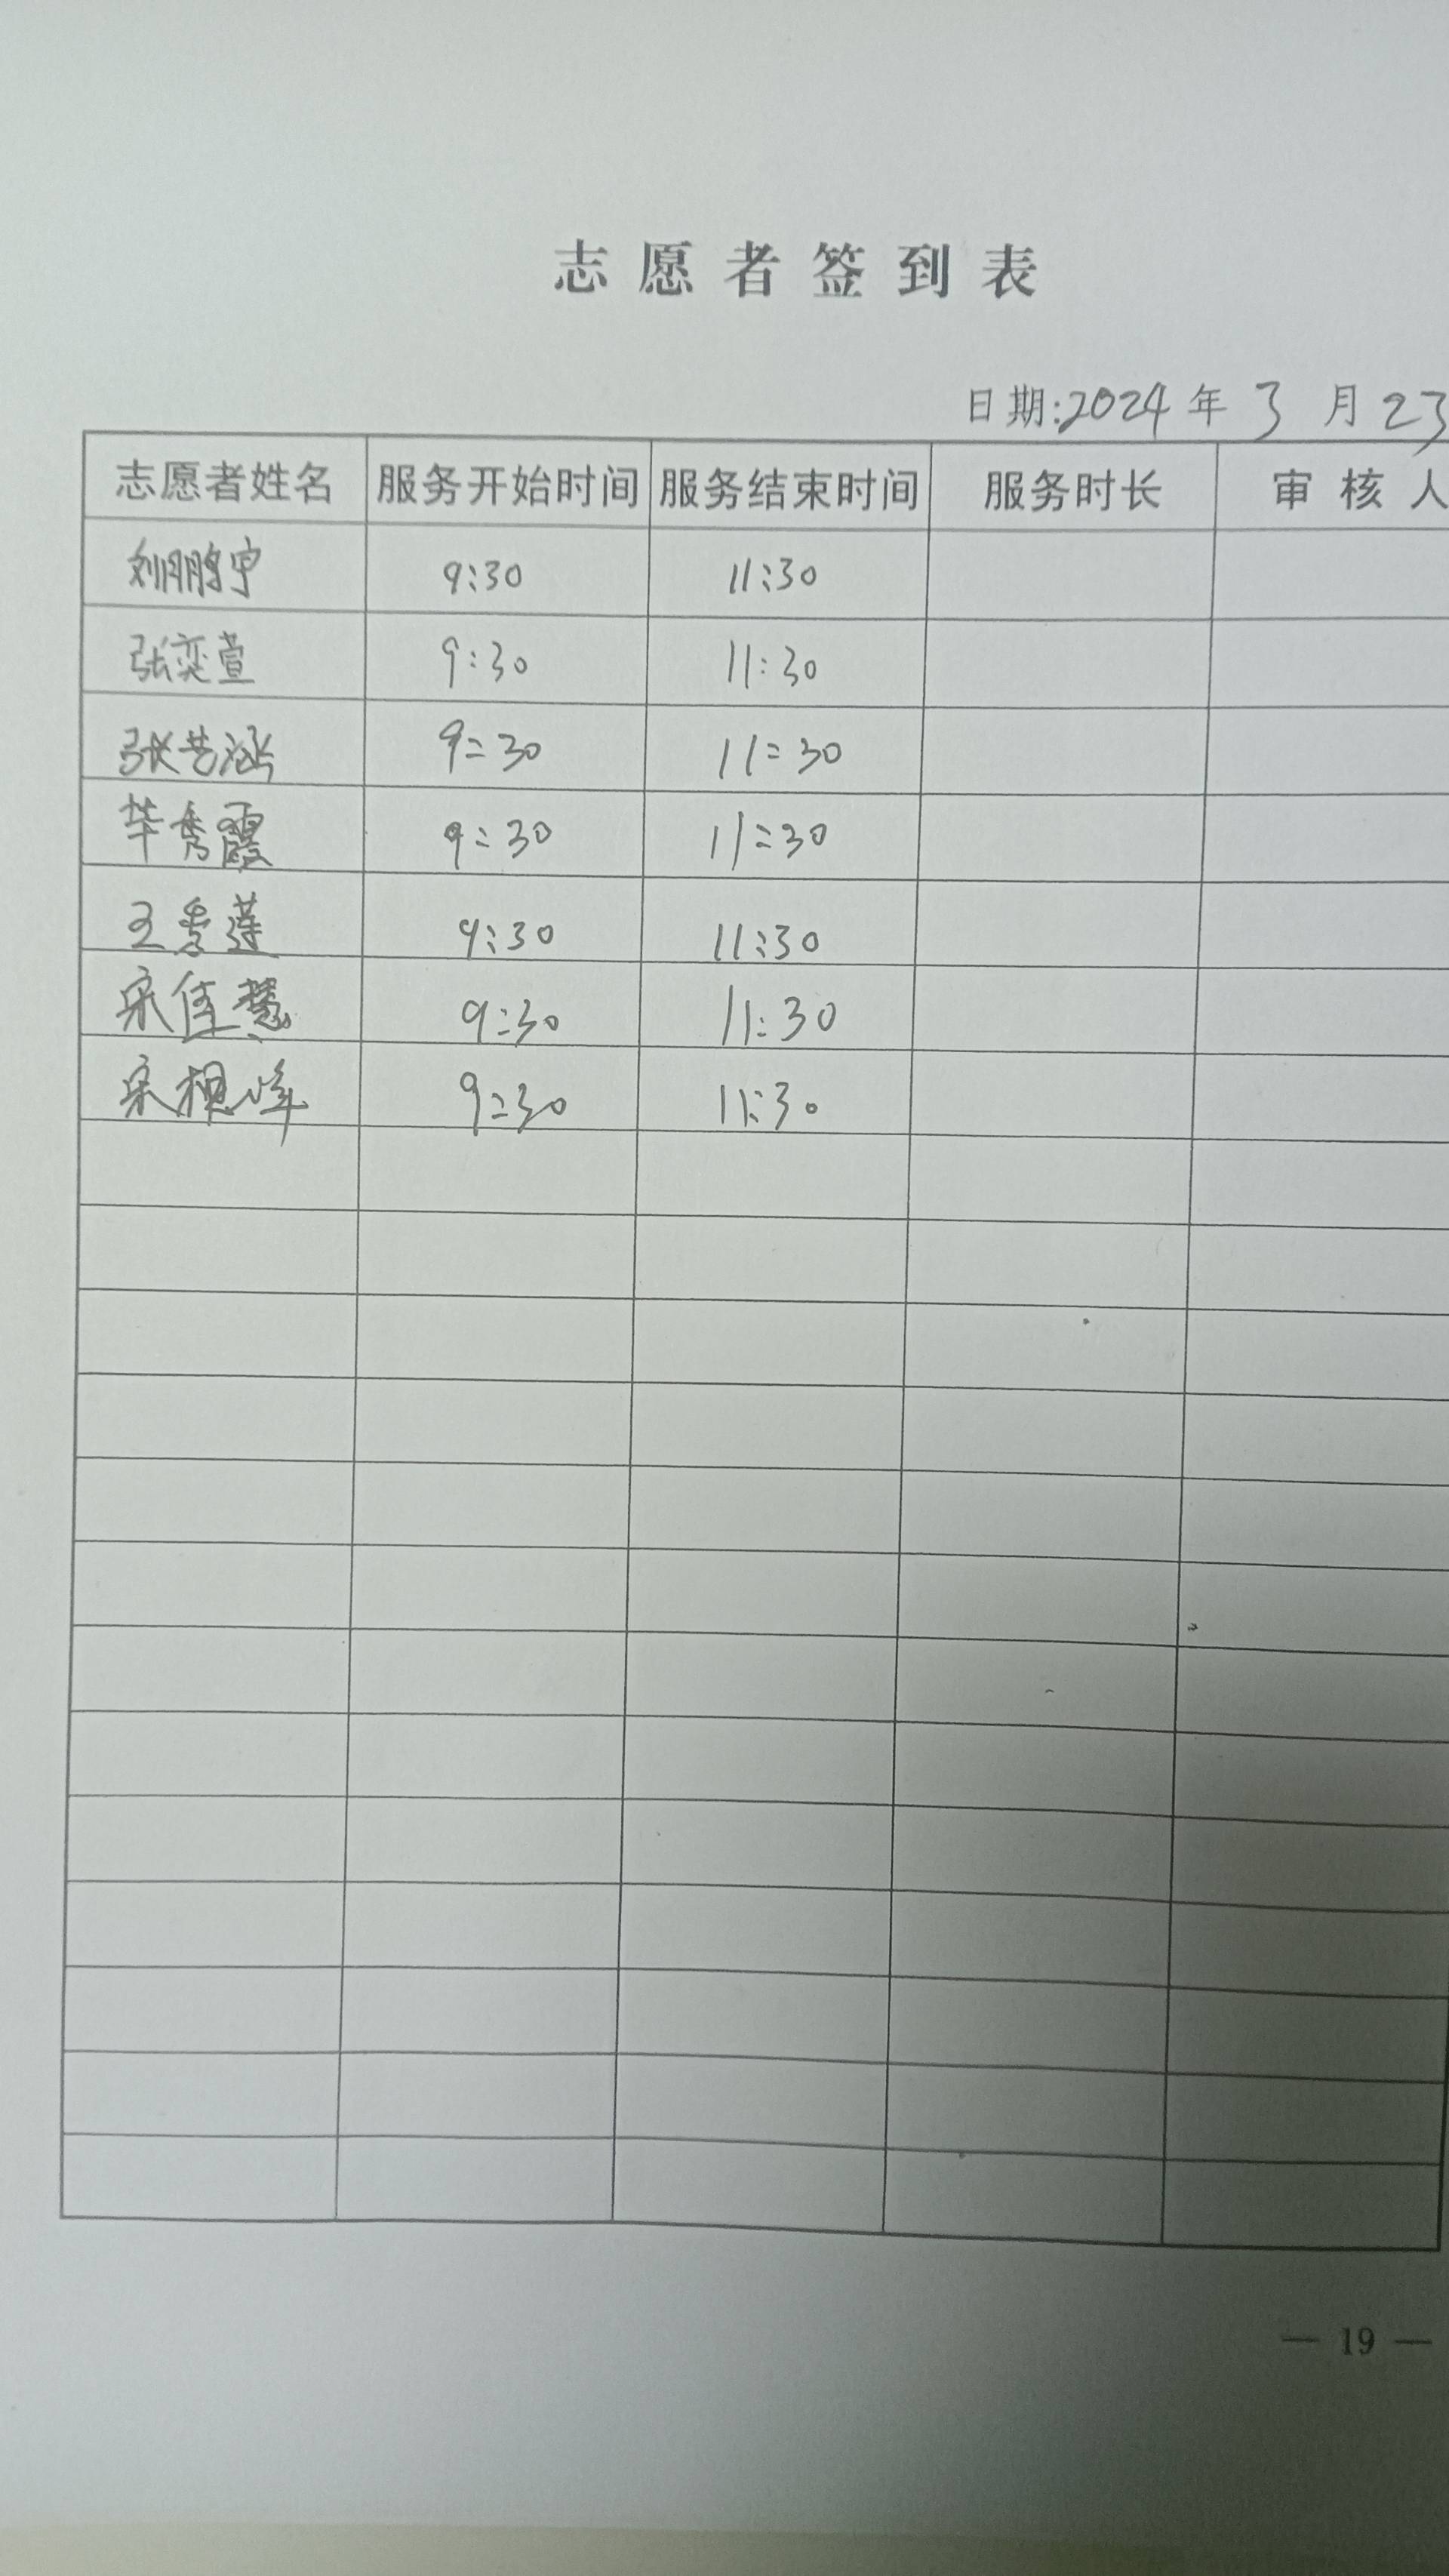 志愿者签到表
日期:2024年3月23
志愿者姓名 服务开始时间 服务结束时间 服务时长 审核人
刘鹏宇 9:30 11:30
张奕萱 9:30 11:30
张艺涵 9:30 11:30
毕秀霞 9:30 11:30
王秀莲 9:30 11:30
宋佳慧 9:30 11:30
宋峰 9:30 11:30
— 19 —